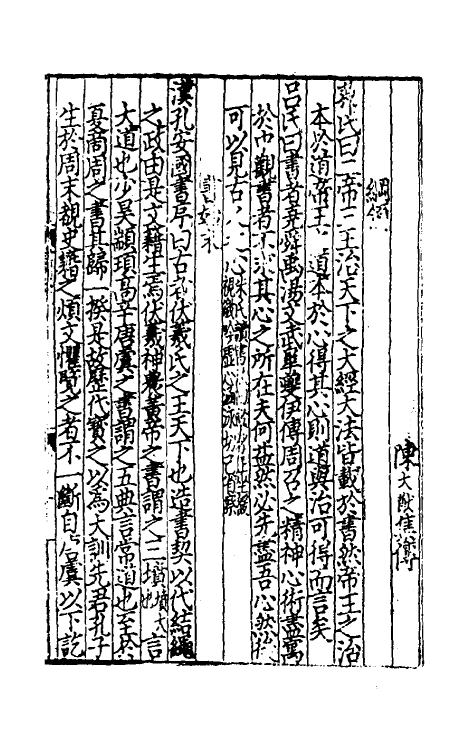 陳大猷集傳
綱領
鄭氏曰二帝三王治天下之大經大法皆載於書然帝王之治
本於道帝王道本於心得其心則道與治可得而言矣
呂氏曰書者堯舜禹湯文武皐夔伊傅周召之精神心術盡寓
於中觀書者不求其心之所在夫何益然必先盡吾心然後
可以見古心
書始末
漢孔安國書序曰古者伏羲氏之王天下也造書契以代結繩
之政由是文籍生焉伏羲神農黃帝之書謂之三墳墳大也言
大道也少昊顓頊高辛唐虞之書謂之五典言常道也至於
夏商周之書其歸一揆是故歷代寶之以為大訓先君孔子
生於周末覩史籍之煩文懼覽之者不一斷自唐虞以下訖